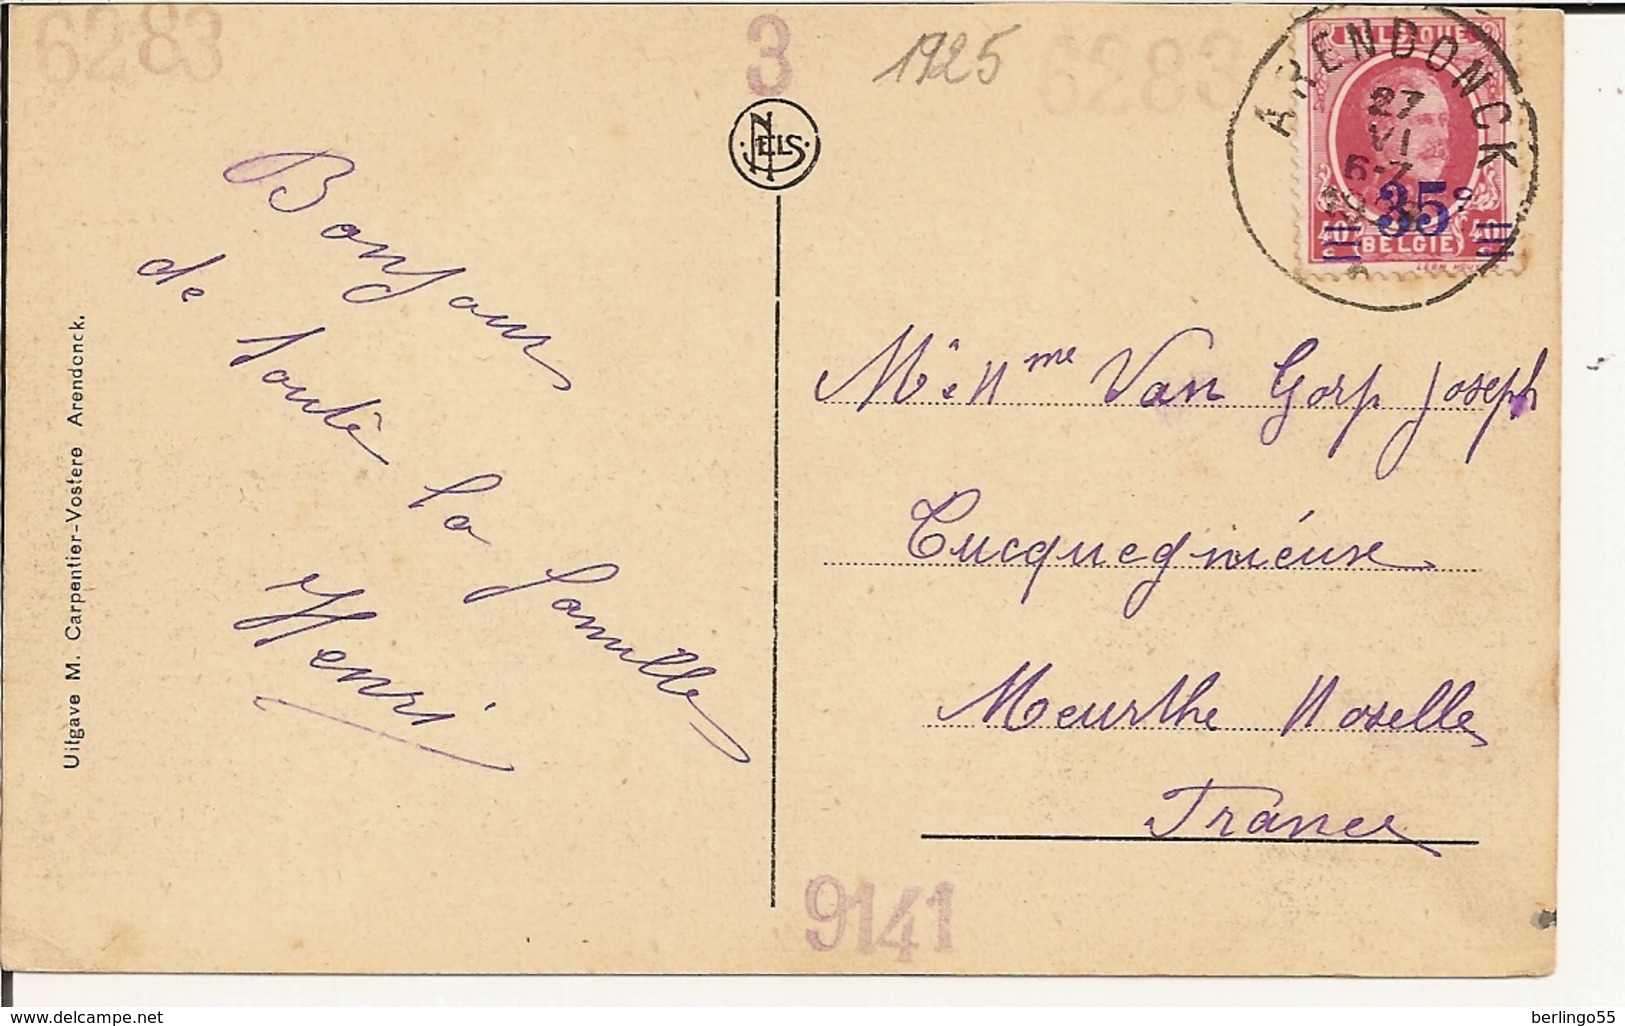 6283
3
1925
6283
BELGIQUE
ARENDONCK
27
VI
6-7
35c
40c BELGIE 40c
NELS
Bonjour
de toute
la famille
Henri
Uitgave M. Carpentier-Vostere Arendonck.
Mr & Mme Van Gorp Joseph
Tucquegnieuse
Meurthe Moselle
France
9141
delcampe.net
berlingo55